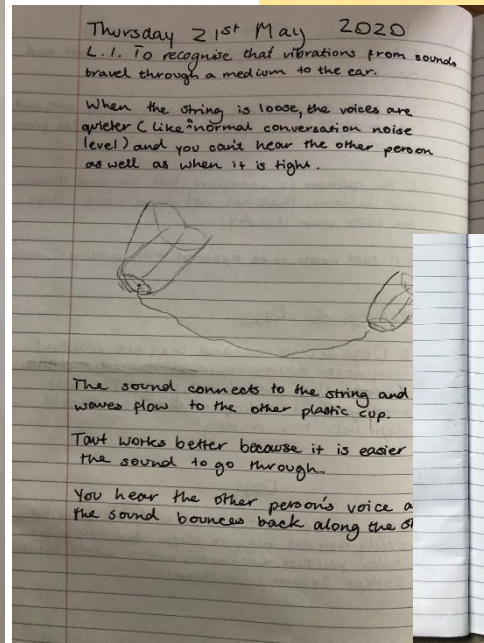 Thursday 21st May 2020
L.I. To recognise that vibrations from sounds
travel through a medium to the ear.
When the string is loose, the voices are
quieter (like a normal conversation noise
level) and you can't hear the other person
as well as when it is tight.
The sound connects to the string and
waves flow to the other plastic cup.
Taut works better because it is easier
the sound to go through.
You hear the other person's voice a
the sound bounces back along the